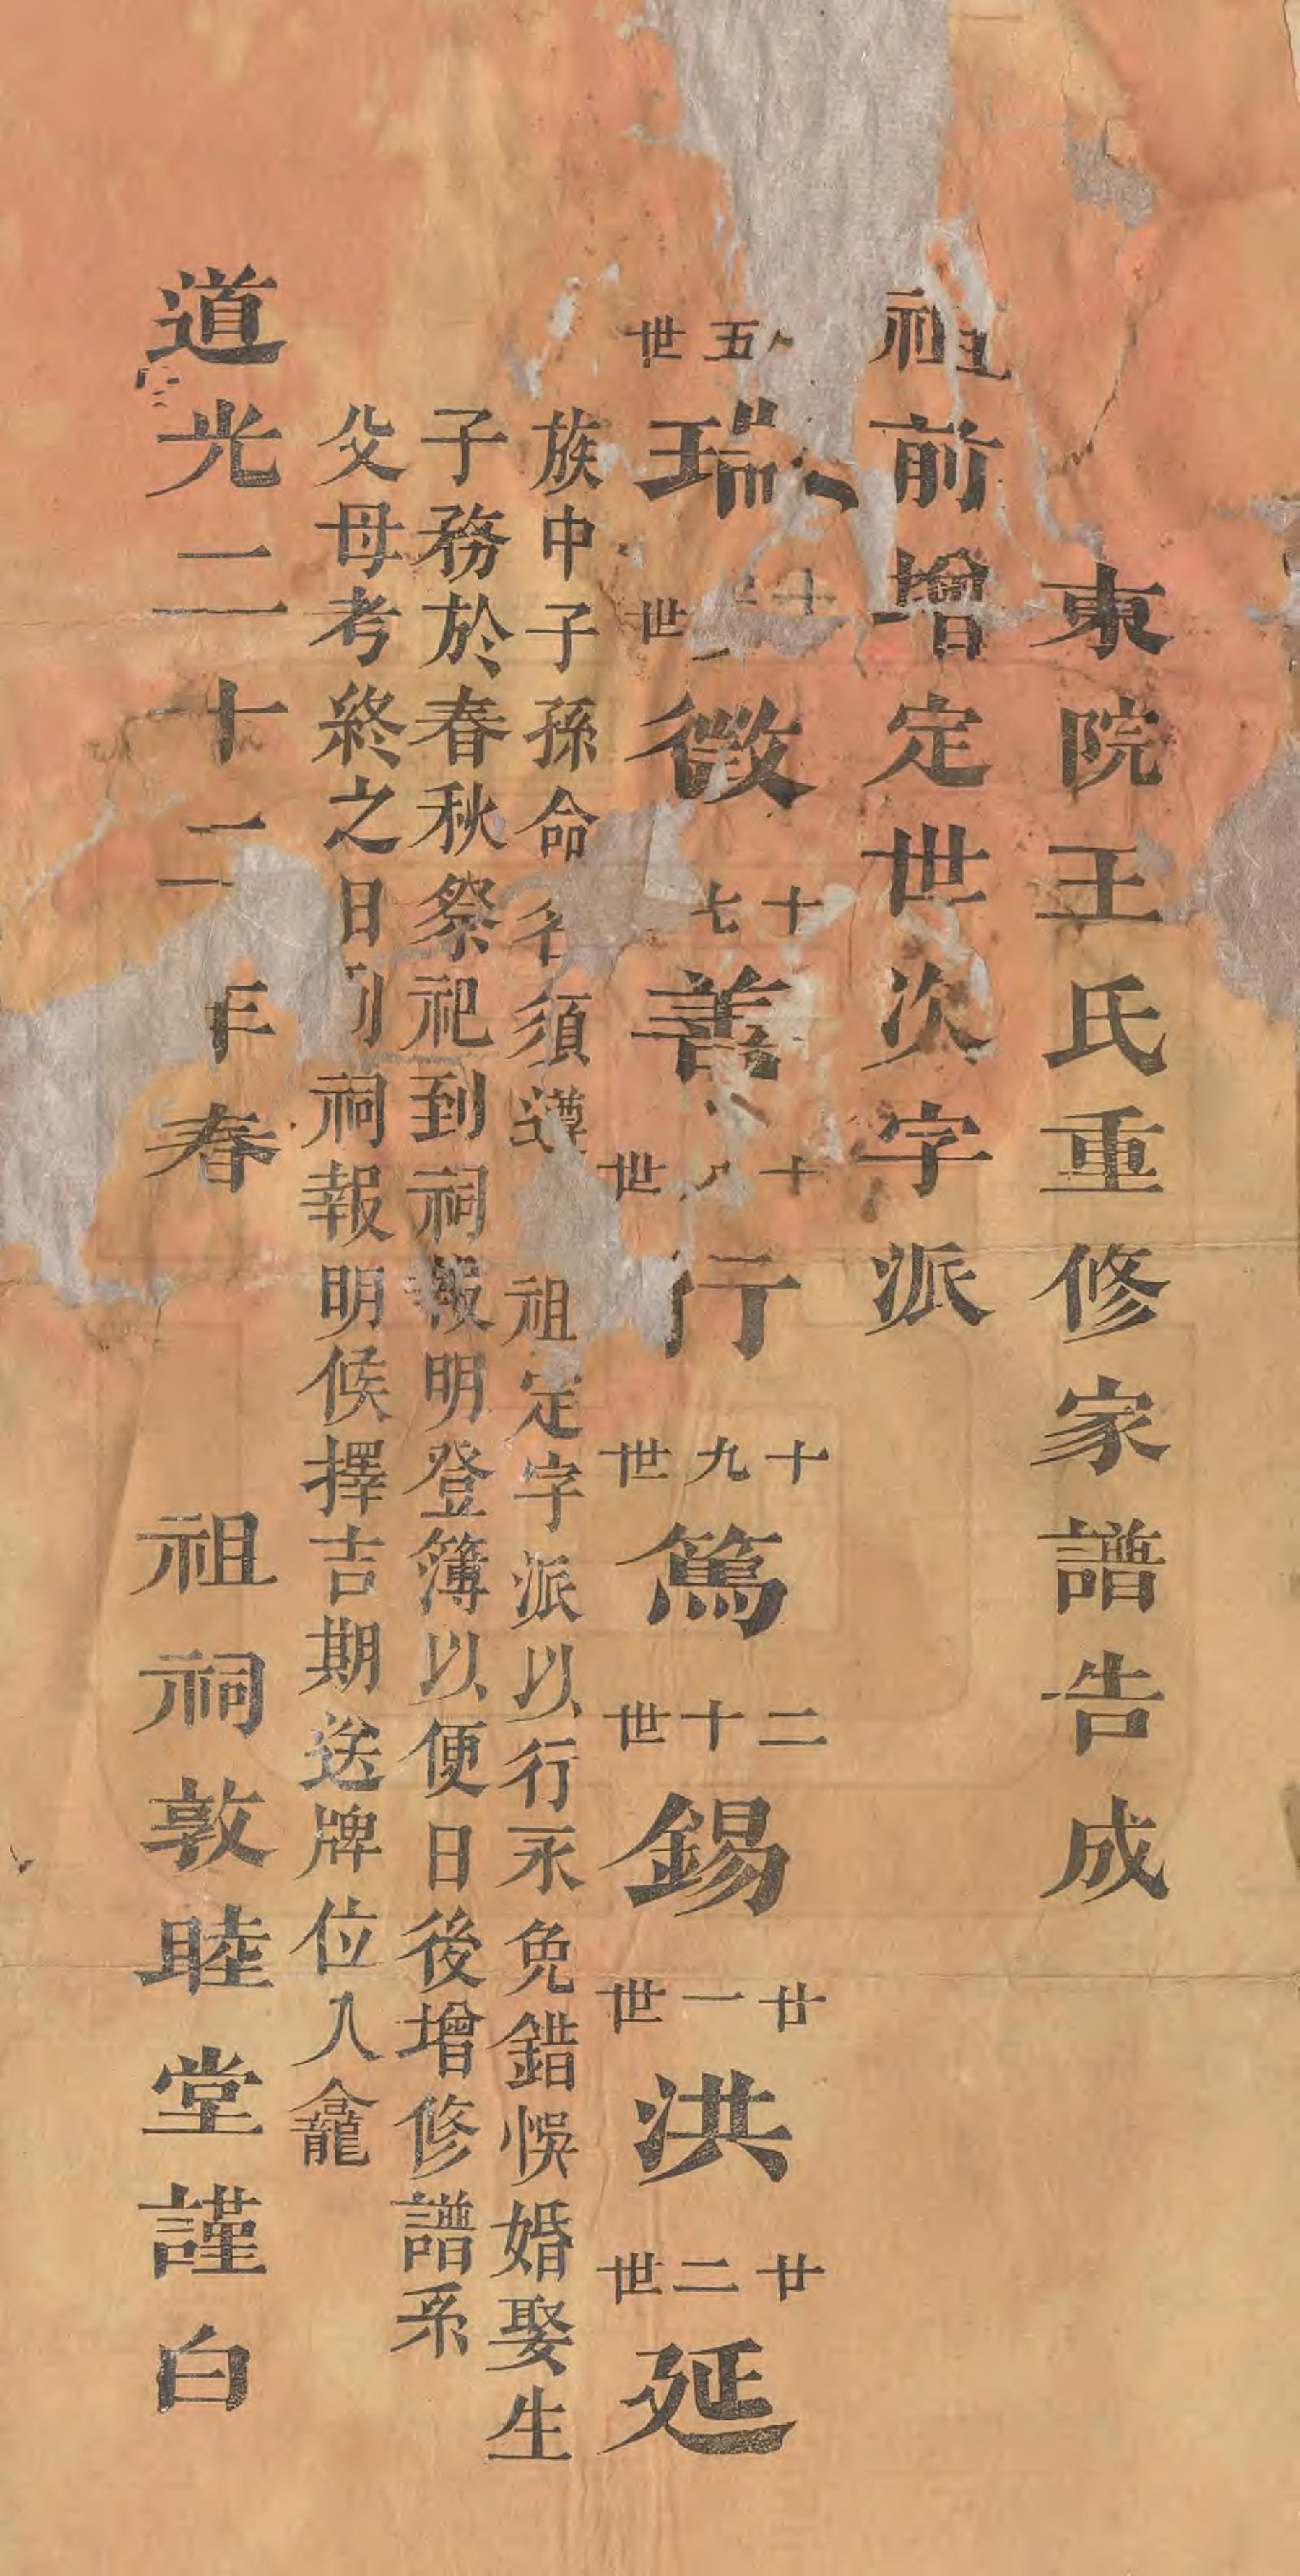 東院王氏重修家譜告成
祖前增定世次字派
五世瑞 十世徵 十七善 十世行 十九世篤 二十世錫 廿一世洪 廿二世延
族中子孫命名須遵 祖定字派以行永免錯悞婚娶生
子務於春秋祭祀到祠報明登簿以便日後增修譜系
父母考終之日 祠報明候擇吉期送牌位入龕
道光二十二年春 祖祠敦睦堂謹白